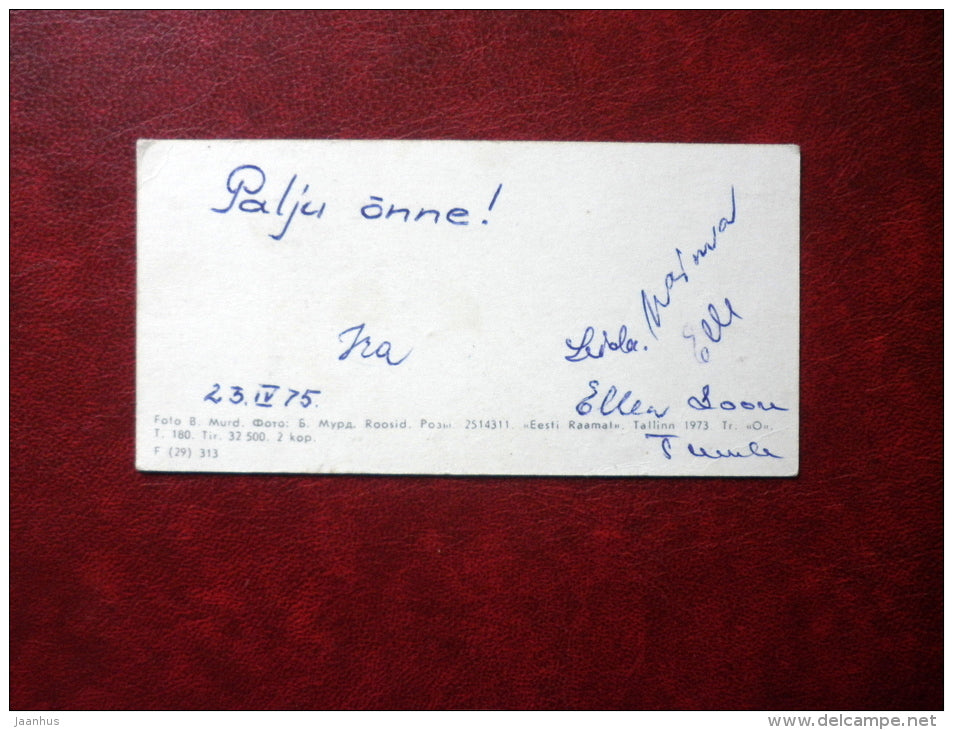 Palju õnne!
Leida.
Elle
23.IV 75.
Ellen
Foto B. Murd. Фото: Б. Мурд. Roosid. Розы. 2S14311. «Eesti Raamat». Tallinn 1973. Tr. «O».
T. 180. Tir. 32 500. 2 kop.
F (29) 313
Jaanhus
www.delcampe.net